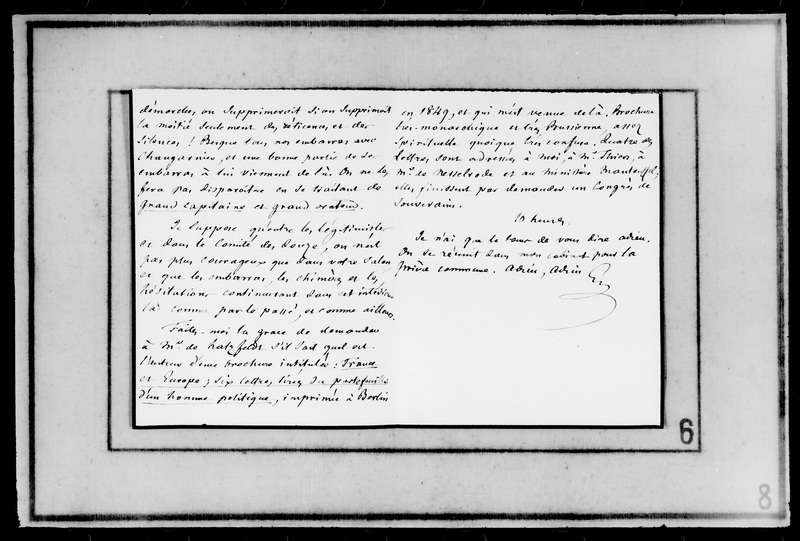 démordre, on supprimeroit si on supprimoit
la moitié seulement des réticences et des
silences ! Presque tous nos embarras avec
Changarnier, et une bonne partie de ses
embarras à lui viennent de là. On ne les
fera pas disparoître en se traitant de
grand capitaine et grand orateur.
Je suppose qu'entre les légitimistes
et dans le Comité des douze, on n'est
pas plus courageux que dans votre salon
et que les embarras, les chimères et les
hésitations continueront dans cet intérieur
là comme par le passé, et comme ailleurs.
Faites-moi la grace de demander
à Mr de Hatzfeldt s'il sait quel est
l'auteur d'une brochure intitulée : France
et Europe ; six lettres tirées du portefeuille
d'un homme politique, imprimée à Berlin
en 1849, et qui m'est venue de là. Brochure
très-monarchique et très Prussienne, assez
spirituelle quoique très confuse. Quatre des
lettres sont adressées à moi, à Mr Thiers, à
Mr de Nesselrode et au Ministère Manteuffel ;
elles finissent par demander un Congrès de
souverains.
10 heures.
Je n'ai que le temps de vous dire adieu.
On se réunit dans mon cabinet pour la
prière commune. Adieu, adieu
G
6
8